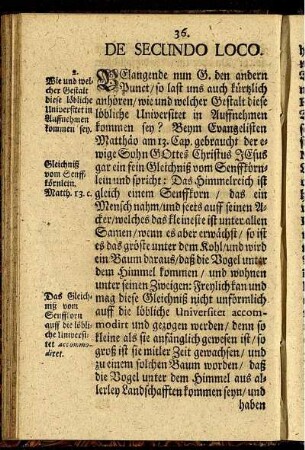 36.
DE SECUNDO LOCO.
2.
Wie und wel-
cher Gestalt
diese löbliche
Universitet in
Auffnehmen
kommen sey.
BElangende nun G. den andern
Punct/ so last uns auch kürtzlich
anhören/ wie und welcher Gestalt diese
löbliche Universitet in Auffnehmen
kommen sey? Beym Evangelisten
Matthäo am 13. Cap. gebraucht der e-
wige Sohn GOttes Christus JEsus
gar ein fein Gleichniß vom Senffkörn-
lein und spricht: Das Himmelreich ist
gleich einem Senffkorn/ das ein
Mensch nahm/ und seets auff seinen A-
cker/ welches das kleineste ist unter allen
Samen/ wenn es aber erwächst/ so ist
es das gröste unter dem Kohl/ und wird
ein Baum daraus/ daß die Vogel unter
dem Himmel kommen/ und wohnen
unter seinen Zweigen: Freylich kan und
mag diese Gleichniß nicht unförmlich
auff die löbliche Universitet accom-
modirt und gezogen werden/ denn so
kleine als sie anfänglich gewesen ist/ so
groß ist sie mitler Zeit gewachsen/ und
zu einem solchen Baum worden/ daß
die Vogel unter dem Himmel aus al-
lerley Landschafften kommen seyn/ und
haben
Gleichniß
vom Senff-
körnlein.
Matth. 13. c.
Das Gleich-
niß vom
Senffkorn
auff die löbli-
che Universi-
tet accommo-
diret.